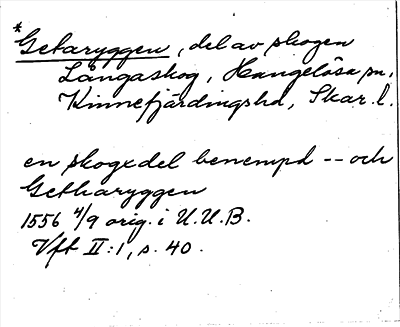 *Getaryggen, del av skogen
Långaskog, Hangelösa sn,
Kinnefjärdingshd, Skar. l.
en skogxdel benempd -- och
Getharyggen
1556 4/9 orig. i U.U.B.
Vft II:1, s. 40.